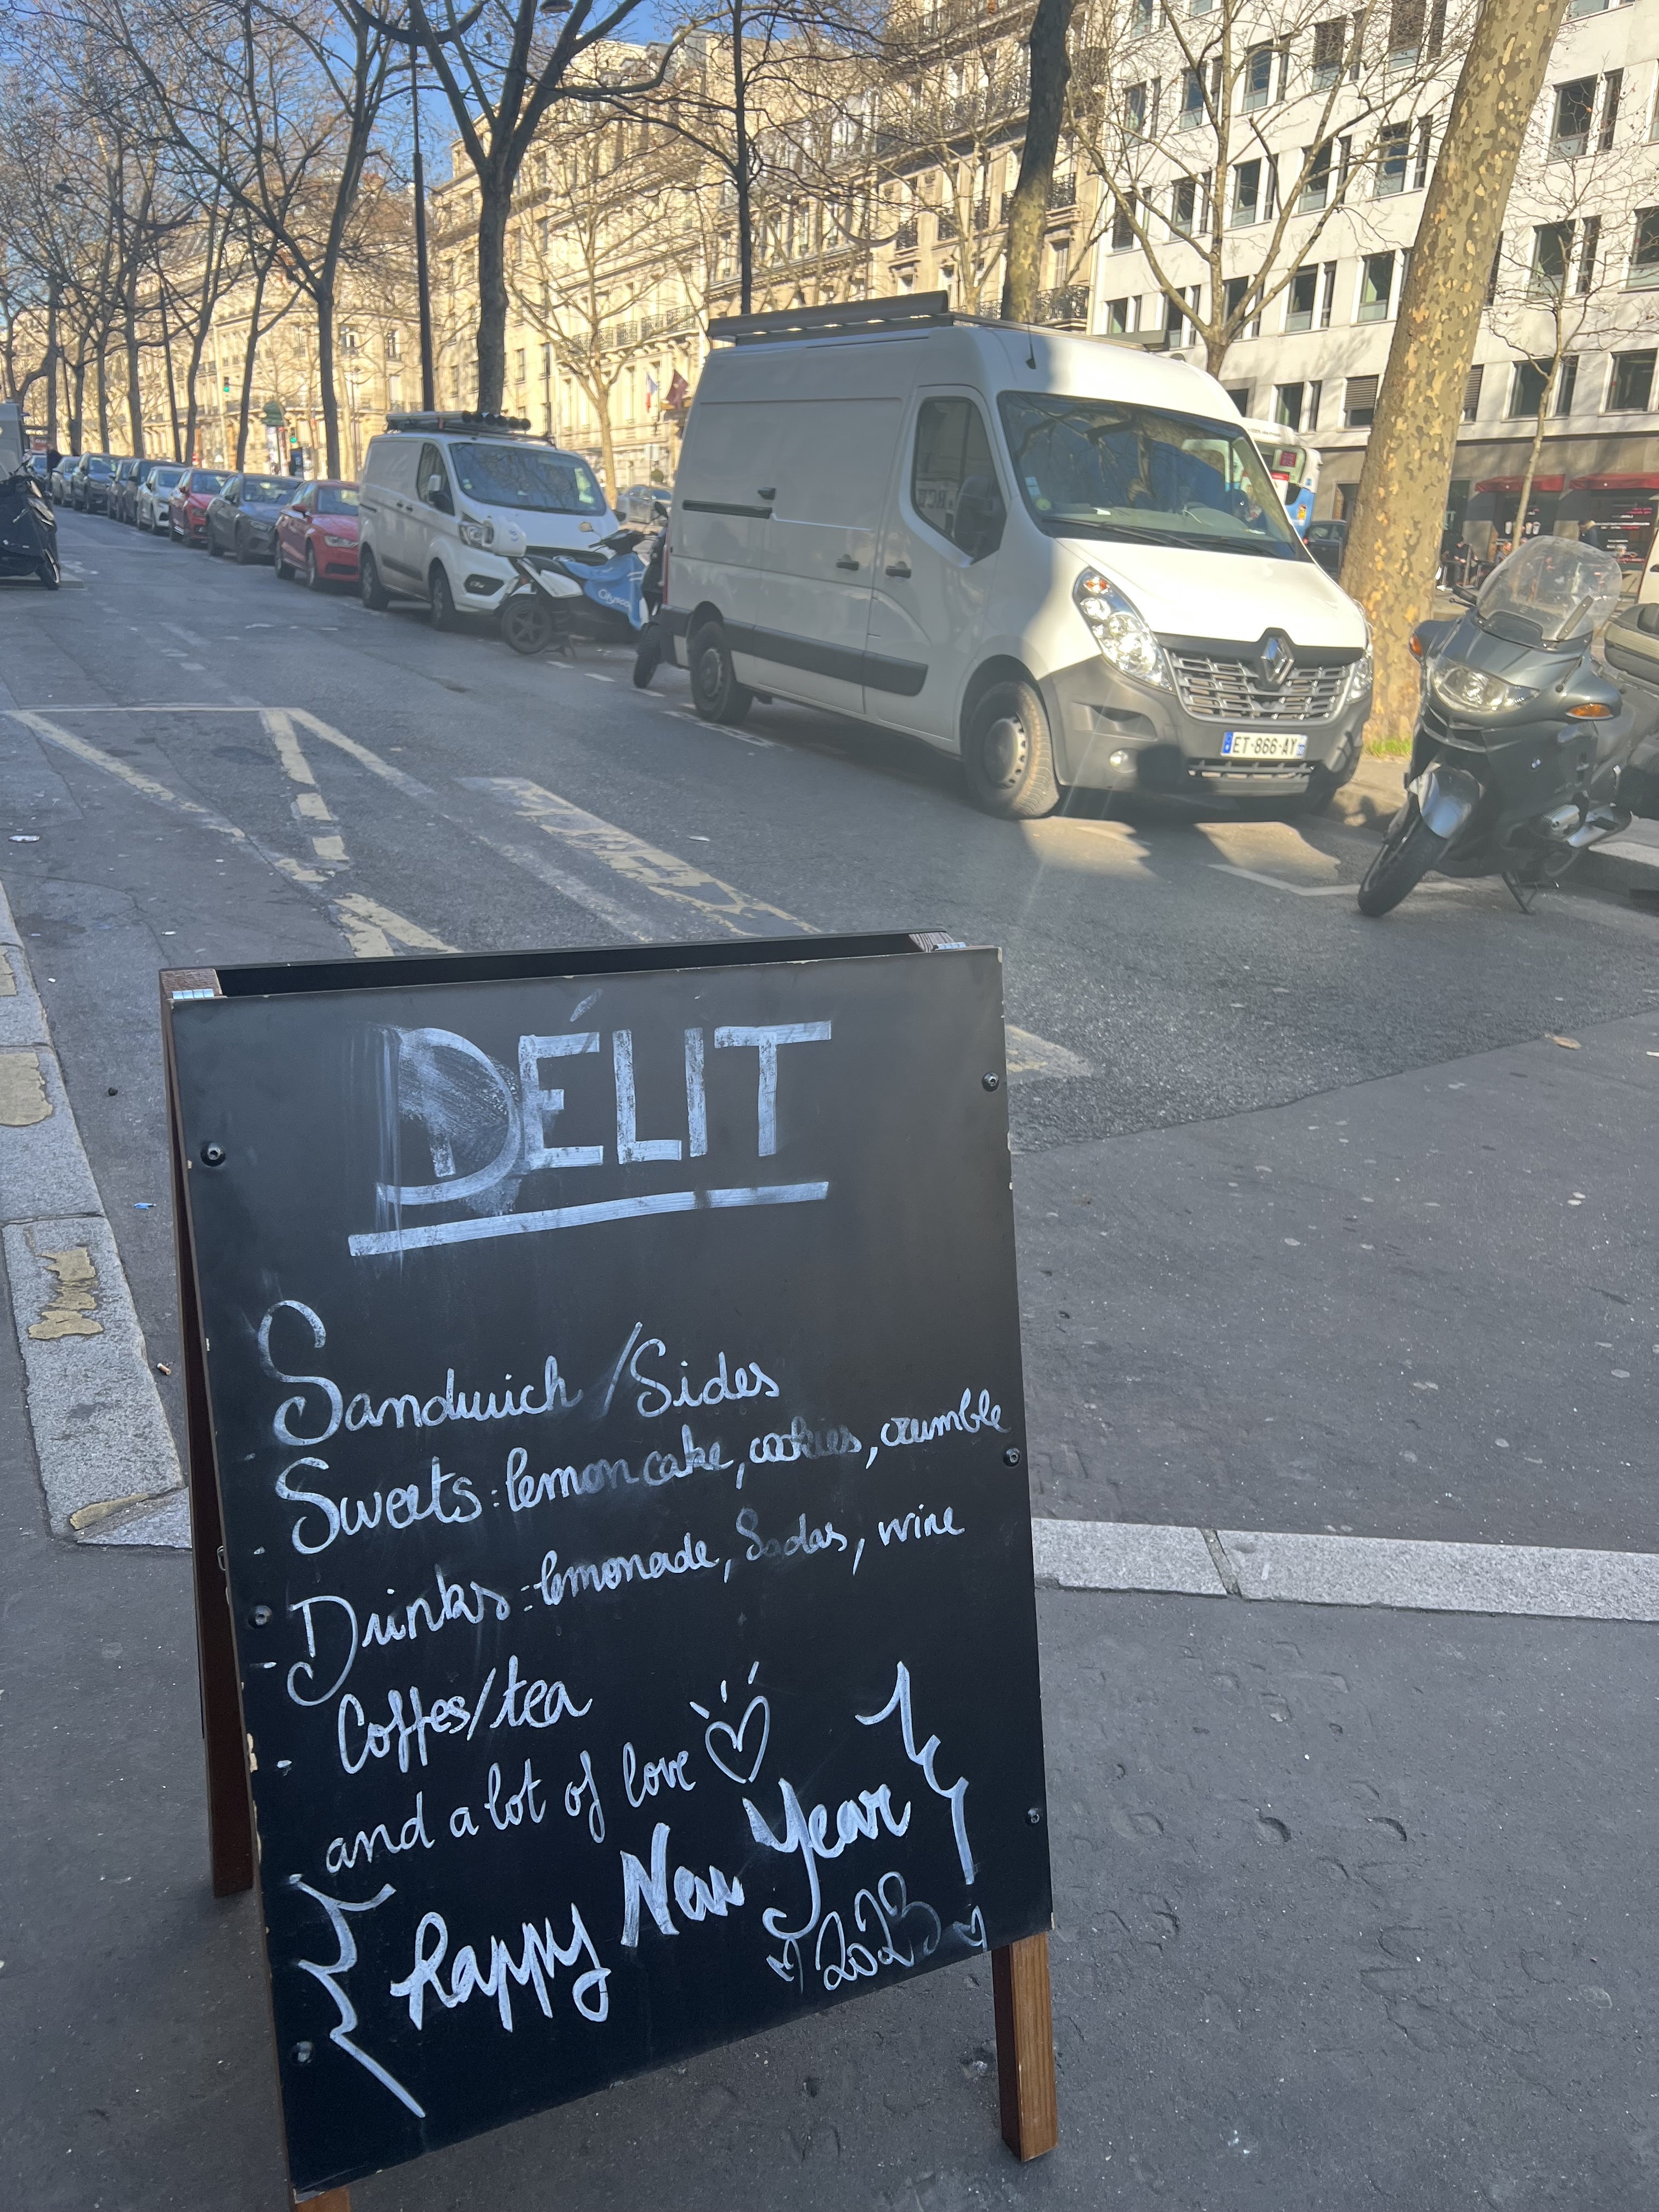 Cityscoot
ET-866-AY
DÉLIT
Sandwich/Sides
- Sweets: lemon cake, cookies, crumble
- Drinks: lemonade, Sodas, wine
- Coffes/tea
- and a lot of love
happy New Year
2023